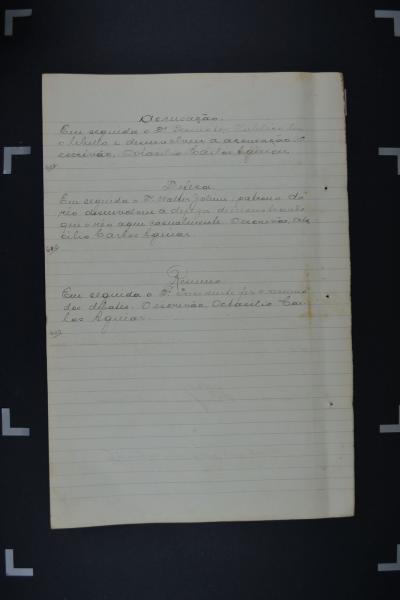 Accusação.
Em seguida o Dr. Promotor Publico leu
o libello e desenvolveu a accusação. O
escrivão, Octacilio Carlos Aguiar.
Defesa
Em seguida o Dr. Walter Jobim, patrono do
réo desenvolveu a defeza demonstrando
que o réo agiu casualmente. O escrivão, Octa
cilio Carlos Aguiar.
Resumo
Em seguida o Dr. Presidente fez o resumo
dos debates. O escrivão, Octacilio Car
los Aguiar.